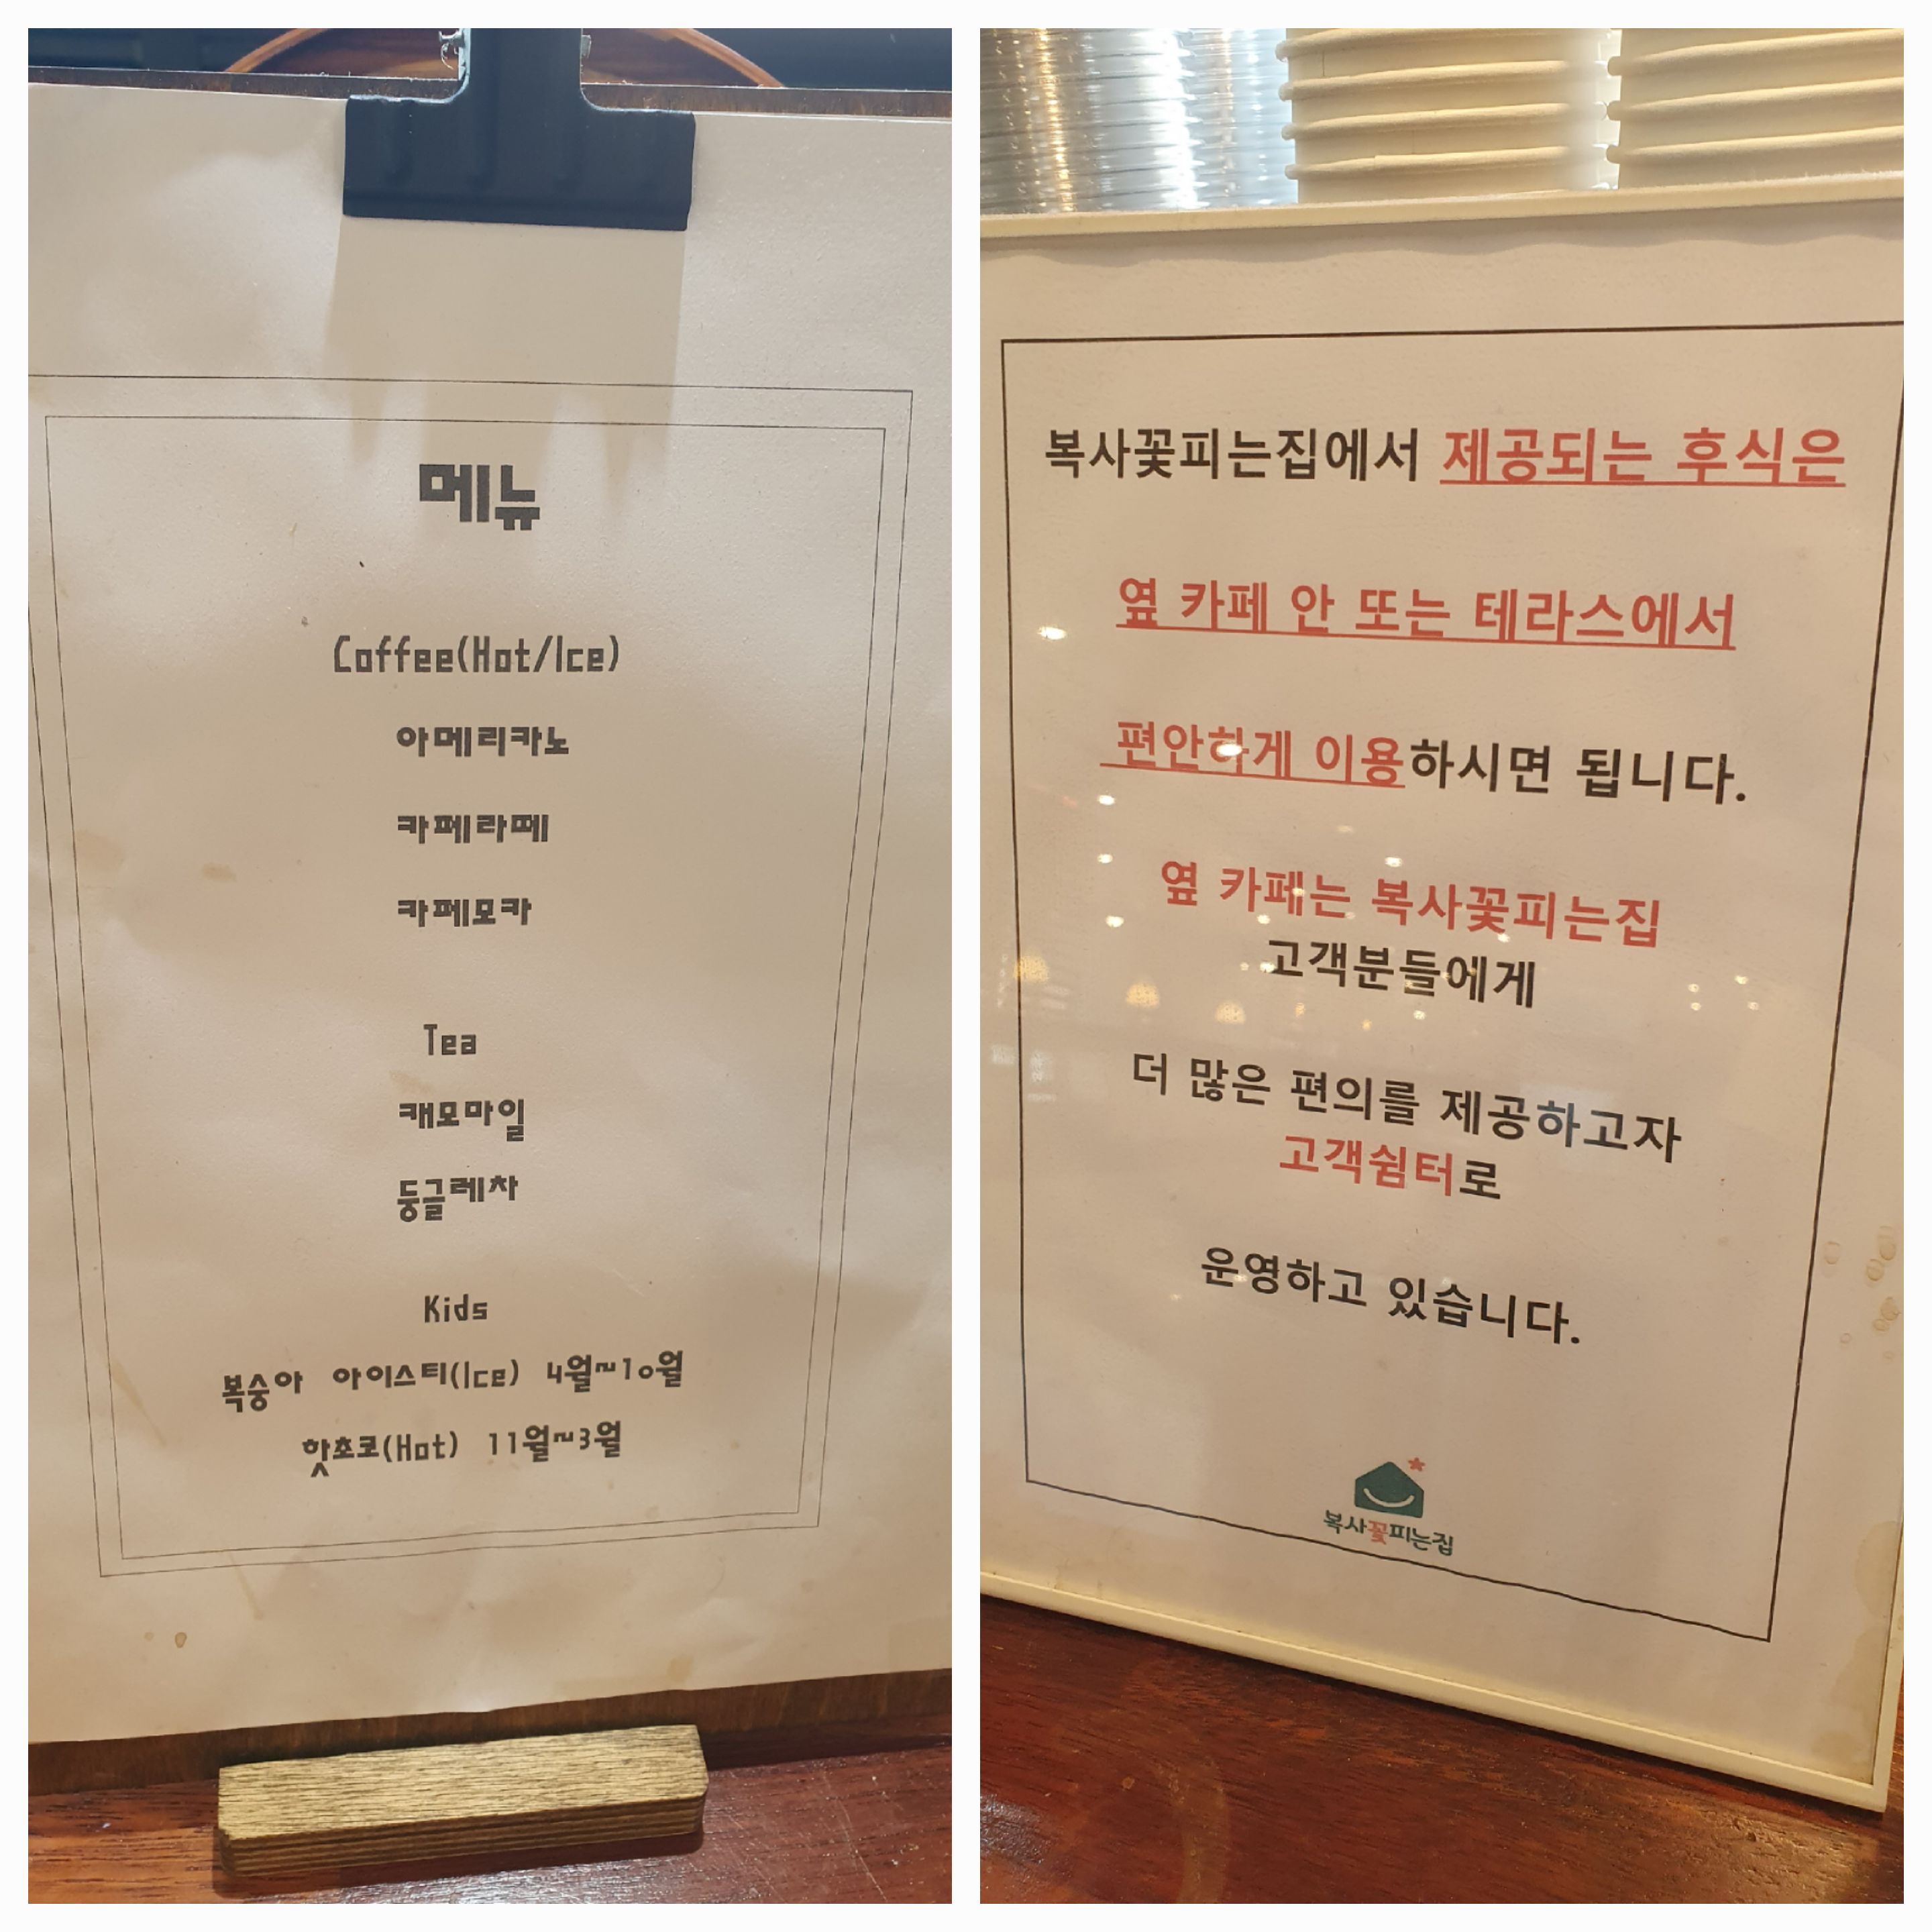 메뉴
Coffee(Hot/Ice)
아메리카노
카페라떼
카페모카
Tea
캐모마일
둥글레차
Kids
복숭아 아이스티(Ice) 4월~10월
핫초코(Hot) 11월~3월
복사꽃피는집에서 제공되는 후식은
옆 카페 안 또는 테라스에서
편안하게 이용하시면 됩니다.
옆 카페는 복사꽃피는집
고객분들에게
더 많은 편의를 제공하고자
고객쉼터로
운영하고 있습니다.
복사꽃피는집